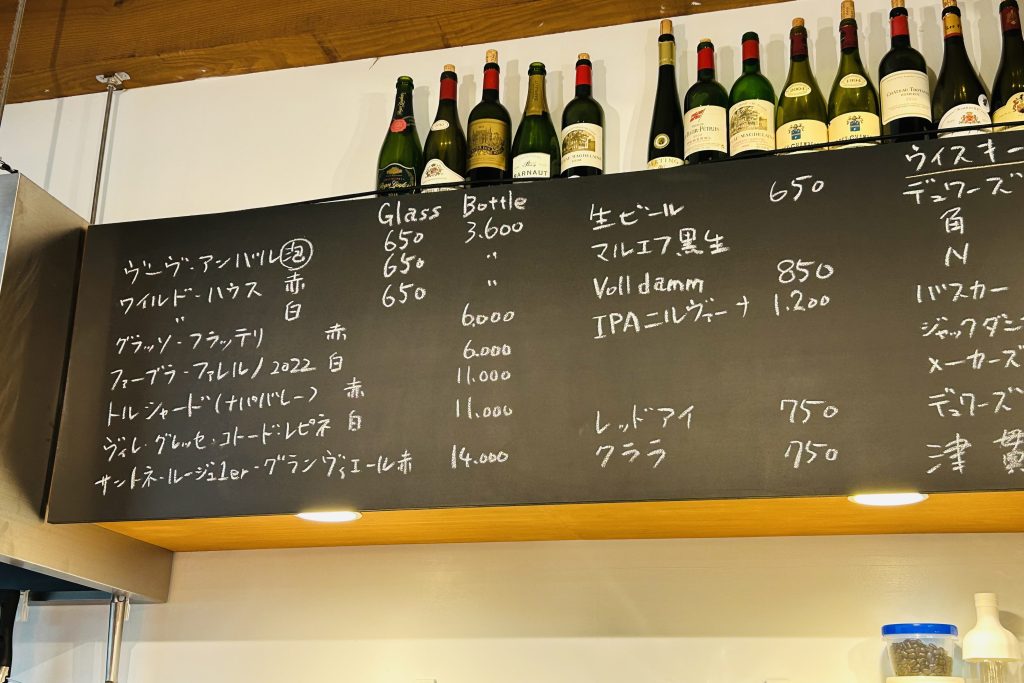 Glass Bottle
ヴーヴ・アンバル 泡 650 3.600
ワイルド・ハウス 赤 650 〃
〃 白 650 〃
グラッソ・フラッテリ 赤 6.000
ファーブラ・ファレルノ2022 白 6.000
トルシャード(ナパバレー) 赤 11.000
ヴィレ・グレッセ・コトード:レピネ 白 11.000
サントネ・ルージュ1er・グランヴィエール赤 14.000
生ビール 650
マルエフ黒生
Voll damm 850
IPAニルヴァーナ 1.200
レッドアイ 750
クララ 750
ウイスキー
デュワーズ
角
N
バスカー
ジャックダニ
メーカーズ
デュワーズ
津貫
2004
1994